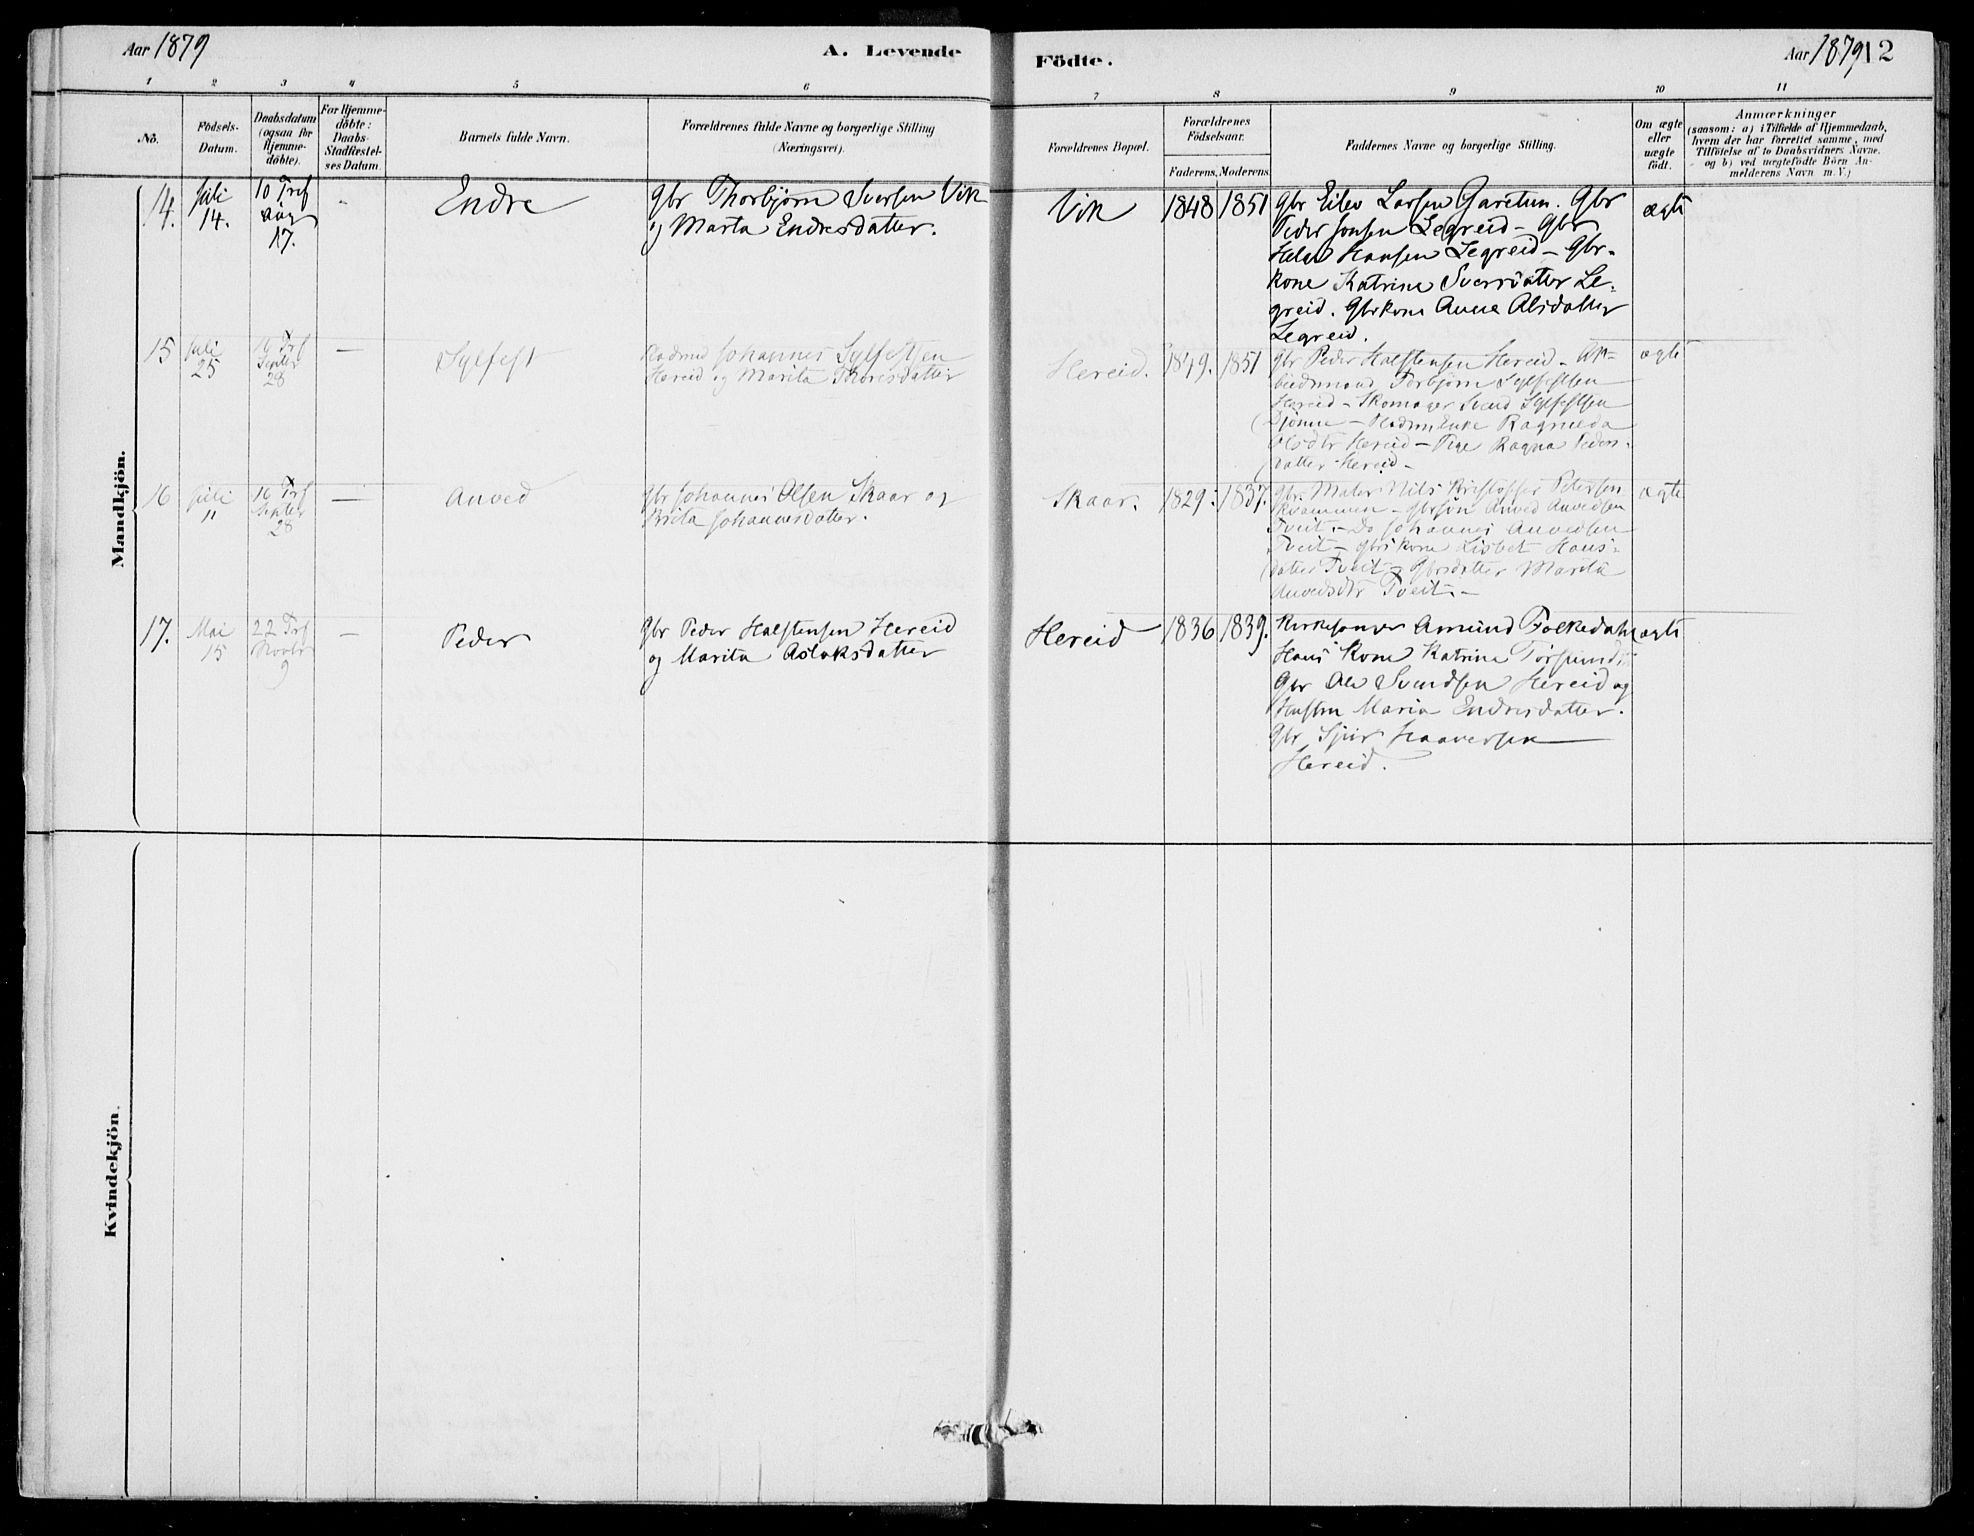 Aar 1879
A. Levende
Födte.
Aar 1879 12
1 2 3 4 5 6 7 8 9 10 11
No.
Födsels-
Datum.
Daabsdatum
(ogsaa for
Hjemme-
döbte).
For Hjemme-
döbte:
Daabs-
Stadfæstel-
ses Datum.
Barnets fulde Navn.
Forældrenes fulde Navne og borgerlige Stilling
(Næringsvei).
Forældrenes Bopæl.
Forældrenes
Födselsaar.
Faderens. Moderens.
Faddernes Navne og borgerlige Stilling.
Om ægte
eller
uægte
födt.
Anmærkninger
(saasom: a) i Tilfælde af Hjemmedaab,
hvem der har forrettet samme, med
Tilföielse af to Daabsvidners Navne,
og b) ved uægtefödte Börn An-
melderens Navn m. V.)
Mandkjön.
14.
Juli
14.
10 Tref
Aug
17.
Endre
Gbr Thorbjørn Iversen Vik
og Marta Endresdatter.
Vik
1848 1851
Gbr Eilev Larsen Garetun. Gbr
Peder Jonsen Legreid - Gbr
Helge Hansen Legreid - Gbr-
kone Katrine Sversdatter Le-
greid. Gbrkone Anna Alsdatter
Legreid.
ægte
15
Juli
25
16 Trf
Septbr
28
—
Sylfest
Johannes Sylfestsen
Hereid og Marita Thoresdatter
Hereid.
1849. 1851
Gbr Peder Halstensen Hereid - Ar-
beidsmand Torbjørn Sylfestsen
Hereid - Skomager Svend Sylfestsen
Djønne - Enke Ragnilda
Olsdtr Hereid - Pige Ragna Peders-
datter Hereid -
ægte
16
Juli
11
16 Trf
Septbr
28
—
Anved
Gbr Johannes Olsen Skaar og
Brita Johannesdatter.
Skaar.
1829. 1837.
Gbr. Maler Nils Kristoffer Petersen
Kvammen - Gbrsøn Anved Anvedsen
Tveit. - Do Johannes Anvedsen
Tveit - Gbrs kone Lisbet Hans-
datter Tveit - Gbrsdatter Marita
Anvedsdtr Tveit. -
ægte
17.
Mai
15
22 Trf
Novbr
9
—
Peder
Gbr Peder Halstensen Hereid
og Marita Aslaksdatter
Hereid
1836 1839.
Kirkesanger Amund Folkedahl
Hans Kone Katrina
Gbr Ole Svendsen Hereid og
Hustru Maria Endresdatter.
Gbr Sjur Haaversen
Hereid.
ægte
Kvindekjön.